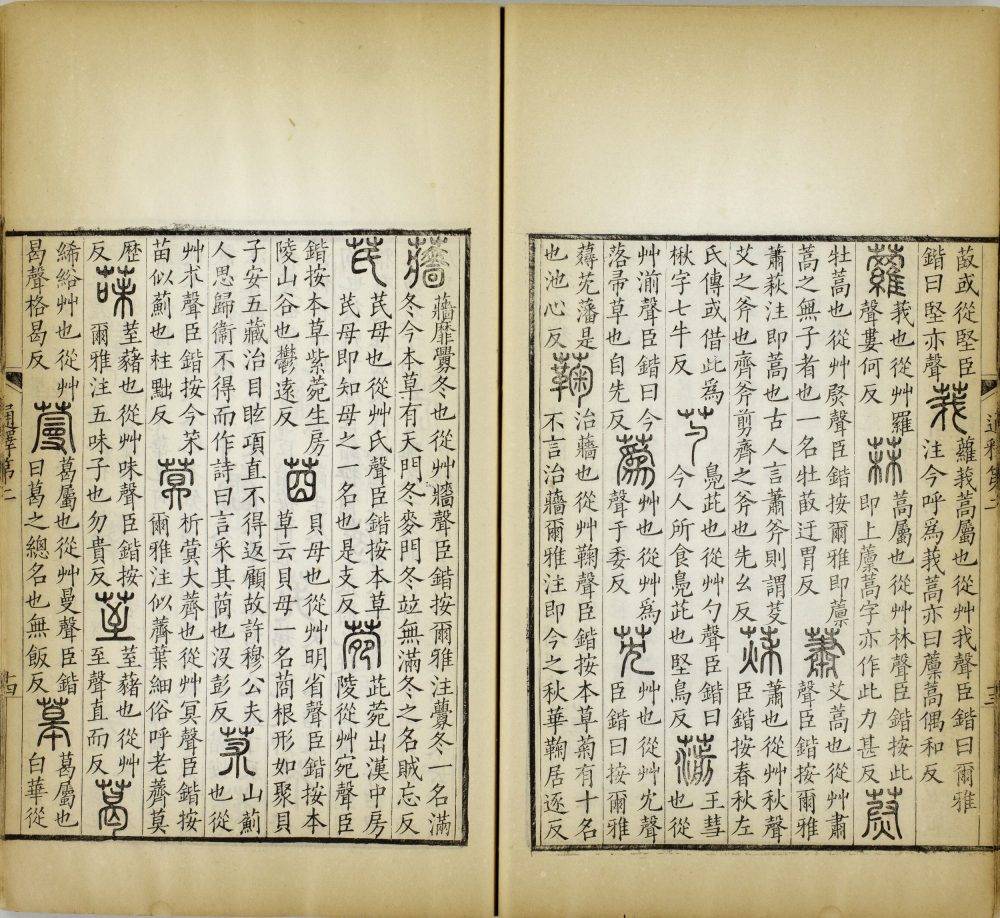 菣或從堅臣
鍇曰堅亦聲
莪
蘿莪蒿屬也從艸我聲臣鍇曰爾雅
注今呼爲莪蒿亦曰藨蒿偶和反
蘿
莪也從艸羅
聲婁何反
菻
蒿屬也從艸林聲臣鍇按此
即上藨蒿字亦作此力甚反
蔚
牡蒿也從艸㷉聲臣鍇按爾雅即藨
蒿之無子者也一名牡菣迂胃反
蕭
艾蒿也從艸肅
聲臣鍇按爾雅
蕭萩注即蒿也古人言蕭斧則謂芟
艾之斧也齊斧剪齊之斧也先幺反
萩
蕭也從艸秋聲
臣鍇按春秋左
氏傳或借此爲
楸字七牛反
芍
鳧茈也從艸勺聲臣鍇曰
今人所食鳧茈也堅鳥反
葥
王彗
也從
艸湔聲臣鍇曰今
落帚草也自先反
蒍
艸也從艸爲
聲于委反
莐
艸也從艸冘聲
臣鍇曰按爾雅
蕁莐藩是
也池心反
鞠
治蘠也從艸鞠聲臣鍇按本草菊有十名
不言治蘠爾雅注即今之秋華鞠居逐反
通釋第二
十三
蘠
蘠蘼虋冬也從艸牆聲臣鍇按爾雅注虋冬一名滿
冬今本草有天門冬麥門冬竝無滿冬之名賊忘反
芪
芪母也從艸氏聲臣鍇按本草
芪母即知母之一名也是支反
菀
茈菀出漢中房
陵從艸宛聲臣
鍇按本草紫菀生房
陵山谷也鬱遠反
莔
貝母也從艸明省聲臣鍇按本
草云貝母一名莔根形如聚貝
子安五藏治目眩項直不得返顧故許穆公夫
人思歸衞不得而作詩曰言采其莔也沒彭反
荗
山薊
也從
艸术聲臣鍇按今荗
苗似薊也柱黜反
蓂
析蓂大薺也從艸冥聲臣鍇按
爾雅注似薺葉細俗呼老薺莫
歴
反
菋
荎藸也從艸味聲臣鍇按
爾雅注五味子也勿貴反
荎
荎藸也從艸
至聲直而反
葛
絺綌艸也從艸
曷聲格曷反
蔓
葛屬也從艸曼聲臣鍇
曰葛之總名也無飯反
葛屬也
白華從
通釋第二
十四